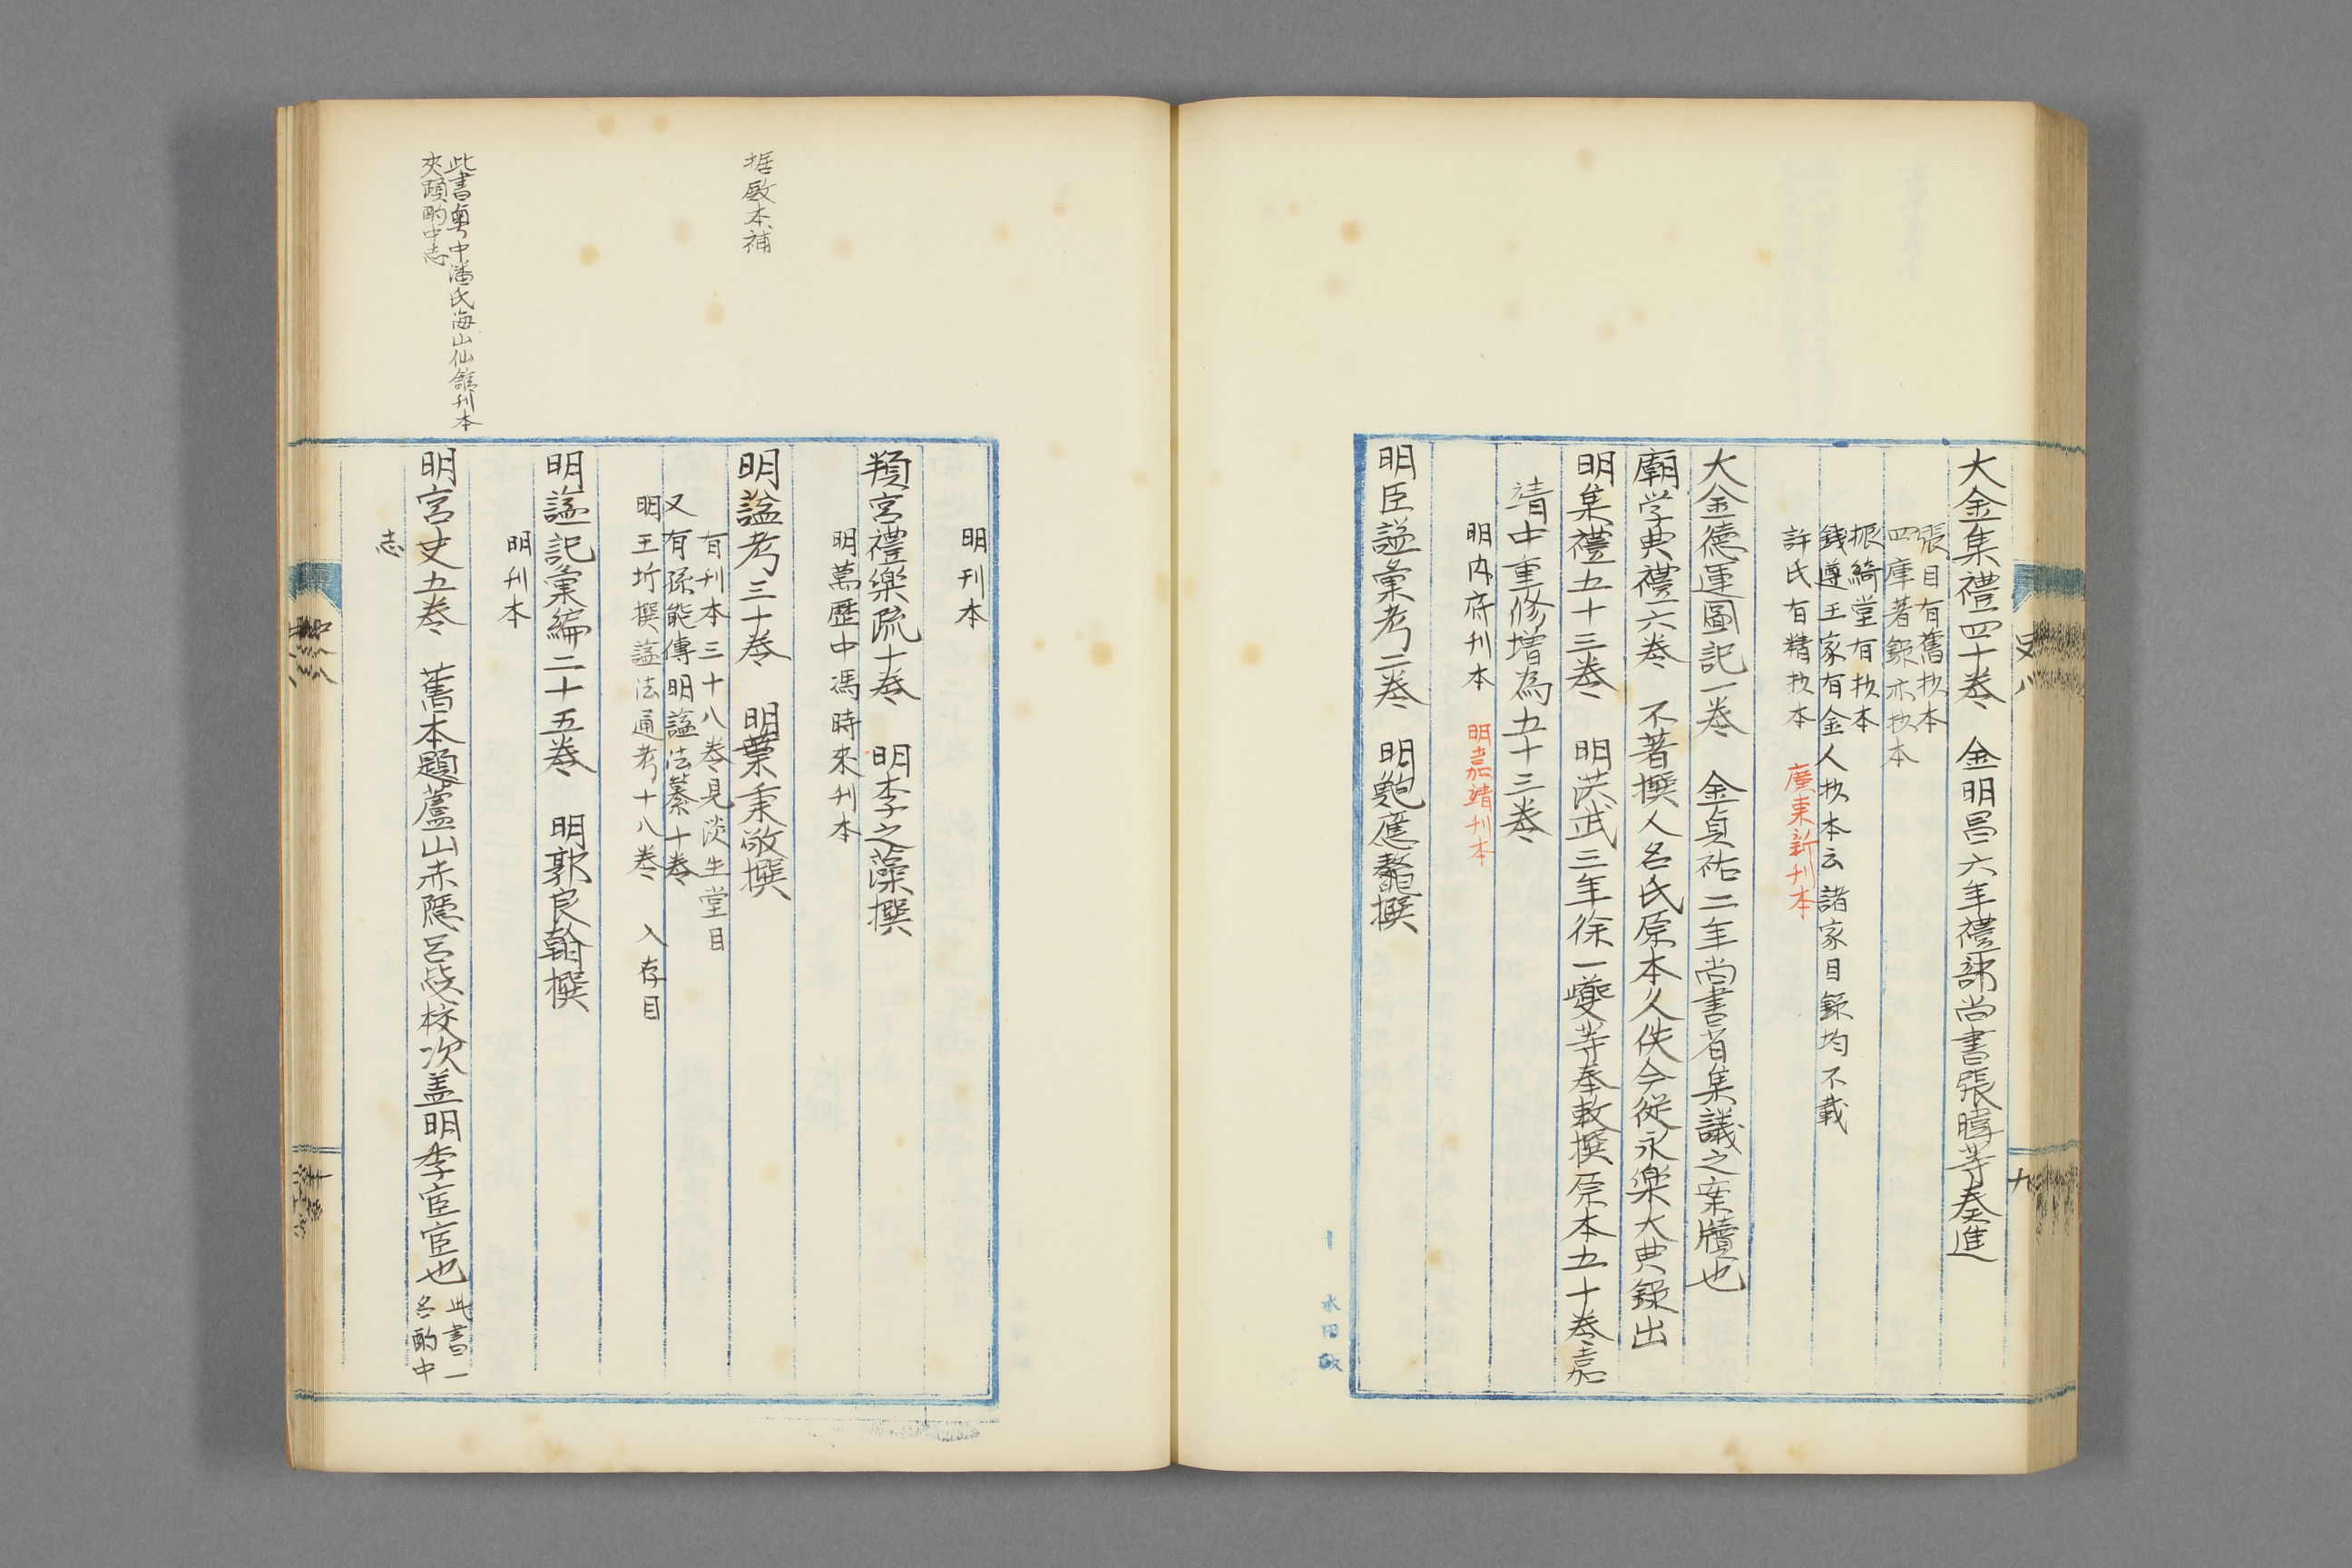 大金集禮四十卷　金明昌六年禮部尚書張暐等奏進
張目有舊抄本
四庫著錄亦抄本
振綺堂有抄本
錢遵王家有金人抄本云諸家目錄均不載
許氏有精抄本　廣東新刊本
大金德運圖記一卷　金貞祐二年尚書省集議之案牘也
廟学典禮六卷　不著撰人名氏原本久佚今從永樂大典錄出
明集禮五十三卷　明洪武三年徐一夔等奉敕撰原本五十卷嘉
靖中重修增為五十三卷
明內府刊本　明嘉靖刊本
明臣諡彙考二卷　明鮑應鰲撰
史八
九
明刊本
頖宮禮樂疏十卷　明李之藻撰
明萬歷中馮時來刊本
据啟本補
明諡考三十卷　明葉秉敬撰
有刊本三十八卷見淡生堂目
又有孫能傳明諡法纂十卷
明王圻撰諡法通考十八卷　入存目
明諡記彙編二十五卷　明郭良翰撰
明刊本
此書粵中潘氏海山仙館刊本
夾頭酌中志
明宮史五卷　舊本題蘆山赤隱呂毖校次盖明季宦宦也　此書一
名酌中
志